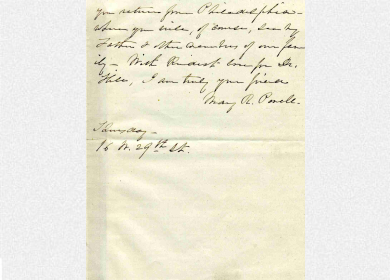 you return from Philadelphia -
where you will, of course, see my
Father & other members of our fam
ily - With kindest love for Dr.
I am truly your friend
Mary R. Powell.
Thursday -
16 W. 29th St.